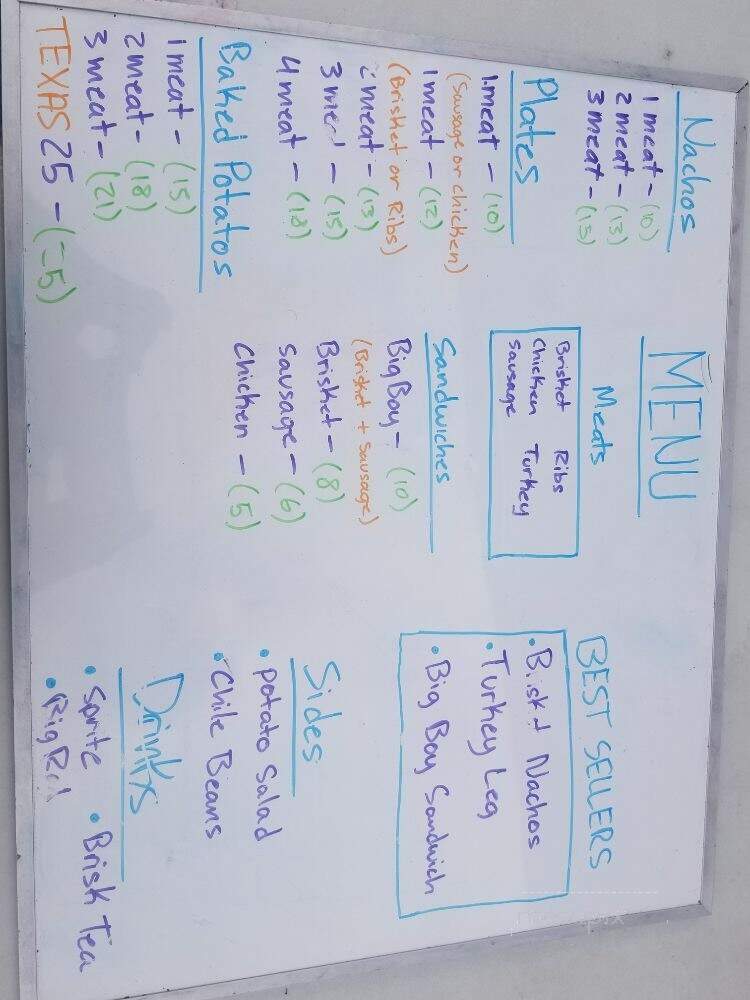 MENU
Nachos
1 meat - (10)
2 meat - (13)
3 meat - (15)
Plates
1 meat - (10)
(Sausage or chicken)
1 meat - (12)
(Brisket or Ribs)
2 meat - (13)
3 meat - (15)
4 meat - (18)
Baked Potatos
1 meat - (15)
2 meat - (18)
3 meat - (21)
TEXAS 25 - (25)
Meats
Brisket Ribs
Chicken Turkey
Sausage
Sandwiches
Big Boy - (10)
(Brisket + Sausage)
Brisket - (8)
Sausage - (6)
Chicken - (5)
BEST SELLERS
• Biskt Nachos
• Turkey Leg
• Big Boy Sandwich
Sides
• Potato Salad
• Chile Beans
Drinks
• Sprite • Brisk Tea
• Big Red